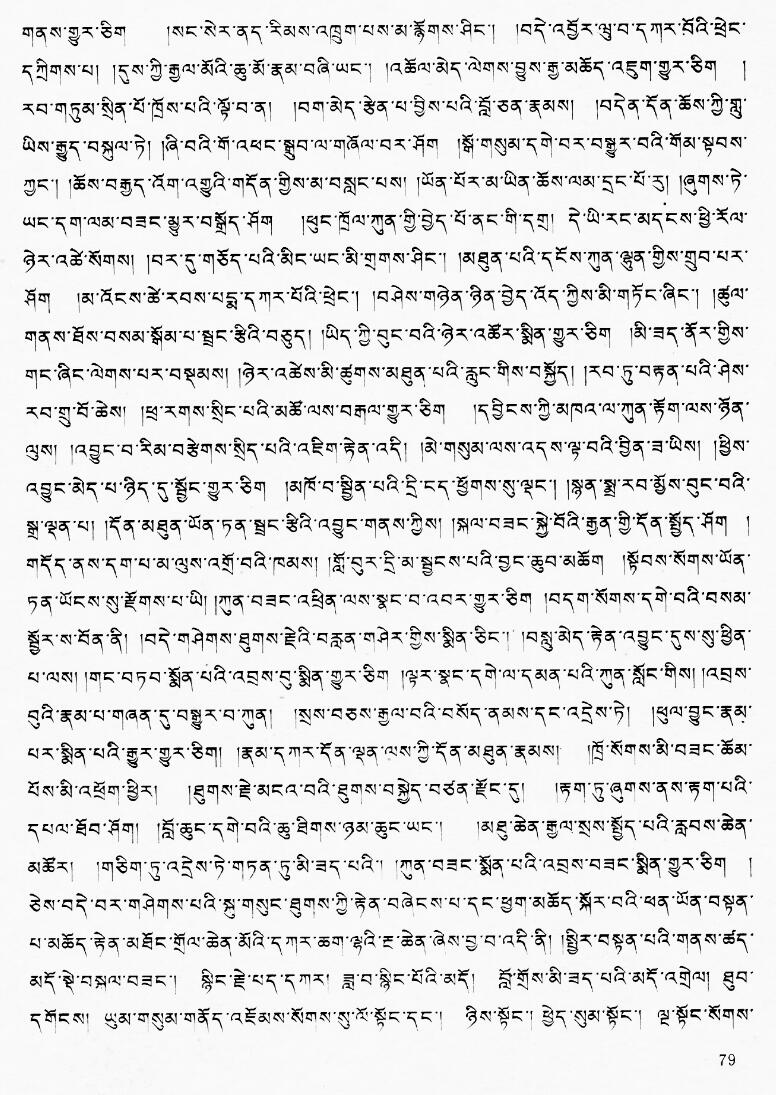 གནས་གྱུར་ཅིག །སང་སེར་ནད་རིམས་འཁྲུག་པས་མ་རྙོགས་ཤིང་། །བདེ་འབྱོར་ཝུ་བ་དཀར་པོའི་ཕྲེང་
དཀྲིགས་པ། །དུས་ཀྱི་རྒྱལ་མོའི་ཆུ་མོ་རྣམ་བཞི་ཡང་། །འཚོལ་མེད་ལེགས་བྱུས་རྒྱ་མཚོད་འཇུག་གྱུར་ཅིག །
རབ་གཏུམ་སྲིན་པོ་ཁྲོས་པའི་ལྟོ་བ་ན། །བག་མེད་རྩེན་པ་བྱིས་པའི་བློ་ཅན་རྣམས། །བདེན་དོན་ཆོས་ཀྱི་གླུ་
ཡིས་རྒྱུད་བསྐུལ་ཏེ། །ཞི་བའི་གོ་འཕང་སྒྲུབ་ལ་གཞོལ་བར་ཤོག །སྒོ་གསུམ་དགེ་བར་བསྒྱུར་བའི་གོམ་སྟབས་
ཀྱང་། །ཆོས་བརྒྱད་འོག་འགྱུའི་གདོན་གྱིས་མ་བསླང་པས། །ཡོན་པོར་མ་ཡིན་ཆོས་ལམ་དྲང་པོ་རུ། །ཞུགས་ཏེ་
ཡང་དག་ལམ་བཟང་མྱུར་བསྒྲོད་ཤོག །ཕུང་ཁྲོལ་ཀུན་གྱི་བྱེད་པོ་ནང་གི་དགྲ། དེ་ཡི་རང་མདངས་ཕྱི་རོལ་
ཉེར་འཚེ་སོགས། །བར་དུ་གཅོད་པའི་མིང་ཡང་མི་གྲགས་ཤིང་། །མཐུན་པའི་དངོས་ཀུན་ལྷུན་གྱིས་གྲུབ་པར་
ཤོག །མ་འོངས་ཚེ་རབས་པདྨ་དཀར་པོའི་ཕྲེང་། །བཤེས་གཉེན་ཉིན་བྱེད་འོད་ཀྱིས་མི་གཏོང་ཞིང་། །ཚུལ་
གནས་ཐོས་བསམ་སྒོམ་པ་སྦྲང་རྩིའི་བཅུད། །ཡིད་ཀྱི་བུང་བའི་ཉེར་འཚོར་སྨིན་གྱུར་ཅིག །མི་ཟད་ནོར་གྱིས་
གང་ཞིང་ལེགས་པར་བསྡམས། །ཉེར་འཚེས་མི་ཚུགས་མཐུན་པའི་རླུང་གིས་བསྐྱོད། །རབ་ཏུ་བརྟན་པའི་ཤེས་
རབ་གྲུ་བོ་ཆེས། །ཕྲ་རགས་སྲིང་པའི་མཚོ་ལས་བརྒལ་གྱུར་ཅིག །དབྱིངས་ཀྱི་མཁའ་ལ་ཀུན་རྟོག་ལས་ཉོན་
ལུས། །འབྱུང་བ་རིམ་བརྩེགས་སྲིད་པའི་འཇིག་རྟེན་འདི། །མེ་གསུམ་ལས་འདས་ལྟ་བའི་བྱིན་ཟ་ཡིས། །ཕྱིས་
འབྱུང་མེད་པ་ཉིད་དུ་སྦྱོང་གྱུར་ཅིག །མཁོ་བ་སྦྱིན་པའི་དྲི་ངད་ཕྱོགས་སུ་ལྡང་། །སྙན་སྨྲ་རབ་མྱོས་བུང་བའི་
སྒྲ་ལྡན་པ། །དོན་མཐུན་ཡོན་ཏན་སྦྲང་རྩིའི་འབྱུང་གནས་ཀྱིས། །སྐལ་བཟང་སྐྱེ་བོའི་རྒྱན་གྱི་དོན་སྤྱོད་ཤོག །
གདོད་ནས་དག་པ་མ་ལུས་འགྲོ་བའི་ཁམས། །གློ་བུར་དྲི་མ་སྦྱངས་པའི་བྱང་ཆུབ་མཆོག །སྟོབས་སོགས་ཡོན་
ཏན་ཡོངས་སུ་རྫོགས་པ་ཡི། །ཀུན་བཟང་འཕྲིན་ལས་སྣང་བ་འབར་གྱུར་ཅིག །བདག་སོགས་དགེ་བའི་བསམ་
སྦྱོར་ས་བོན་ནི། །བདེ་གཤེགས་ཐུགས་རྗེའི་བརླན་གཤེར་གྱིས་སྨིན་ཅིང་། །བསླུ་མེད་རྟེན་འབྱུང་དུས་སུ་ཕྱིན་
པ་ལས། །གང་བཏབ་སྨོན་པའི་འབྲས་བུ་སྨིན་གྱུར་ཅིག །ལྟར་སྣང་དགེ་ལ་དམན་པའི་ཀུན་སློང་གིས། །འབྲས་
བུའི་རྣམ་པ་གཞན་དུ་བསྒྱུར་བ་ཀུན། །སྲས་བཅས་རྒྱལ་བའི་བསོད་ནམས་དང་འདྲེས་ཏེ། །ཕུལ་བྱུང་རྣམ་
པར་སྨིན་པའི་རྒྱུར་གྱུར་ཅིག། །རྣམ་དཀར་དོན་ལྡན་ལས་ཀྱི་དོན་མཐུན་རྣམས། །ཁྲོ་སོགས་མི་བཟང་ཆོམ་
པོས་མི་འཕྲོག་ཕྱིར། །ཐུགས་རྗེ་མངའ་བའི་ཐུགས་བསྐྱེད་བཙན་རྫོང་དུ། །རྟག་ཏུ་ཞུགས་ནས་རྟག་པའི་
དཔལ་ཐོབ་ཤོག། །བློ་ཆུང་དགེ་བའི་ཆུ་ཐིགས་ཉམ་ཆུང་ཡང་། །མཐུ་ཆེན་རྒྱལ་སྲས་སྤྱོད་པའི་རླབས་ཆེན་
མཚོར། །གཅིག་ཏུ་འདྲེས་ཏེ་གཏན་ཏུ་མི་ཟད་པའི། །ཀུན་བཟང་སྨོན་པའི་འབྲས་བཟང་སྨིན་གྱུར་ཅིག །
ཅེས་བདེ་བར་གཤེགས་པའི་སྐུ་གསུང་ཐུགས་ཀྱི་རྟེན་བཞེངས་པ་དང་ཕྱག་མཆོད་སྐོར་བའི་ཕན་ཡོན་བསྟན་
པ་མཆོད་རྟེན་མཐོང་གྲོལ་ཆེན་མོའི་དཀར་ཆག་ལྷའི་རྔ་ཆེན་ཞེས་བྱ་བ་འདི་ནི། །སྤྱིར་བསྟན་པའི་གནས་ཚད་
མདོ་སྡེ་བསྐལ་བཟང་། སྙིང་རྗེ་པད་དཀར། ཟླ་བ་སྙིང་པོའི་མདོ། བློ་གྲོས་མི་ཟད་པའི་མདོ་འགྲེལ། ཐུབ་
དགོངས། ཡུམ་གསུམ་གནོད་འཇོམས་སོགས་སུ་ལོ་སྟོང་དང་། ཉིས་སྟོང་། ཕྱེད་སུམ་སྟོང་། ལྔ་སྟོང་སོགས་
79